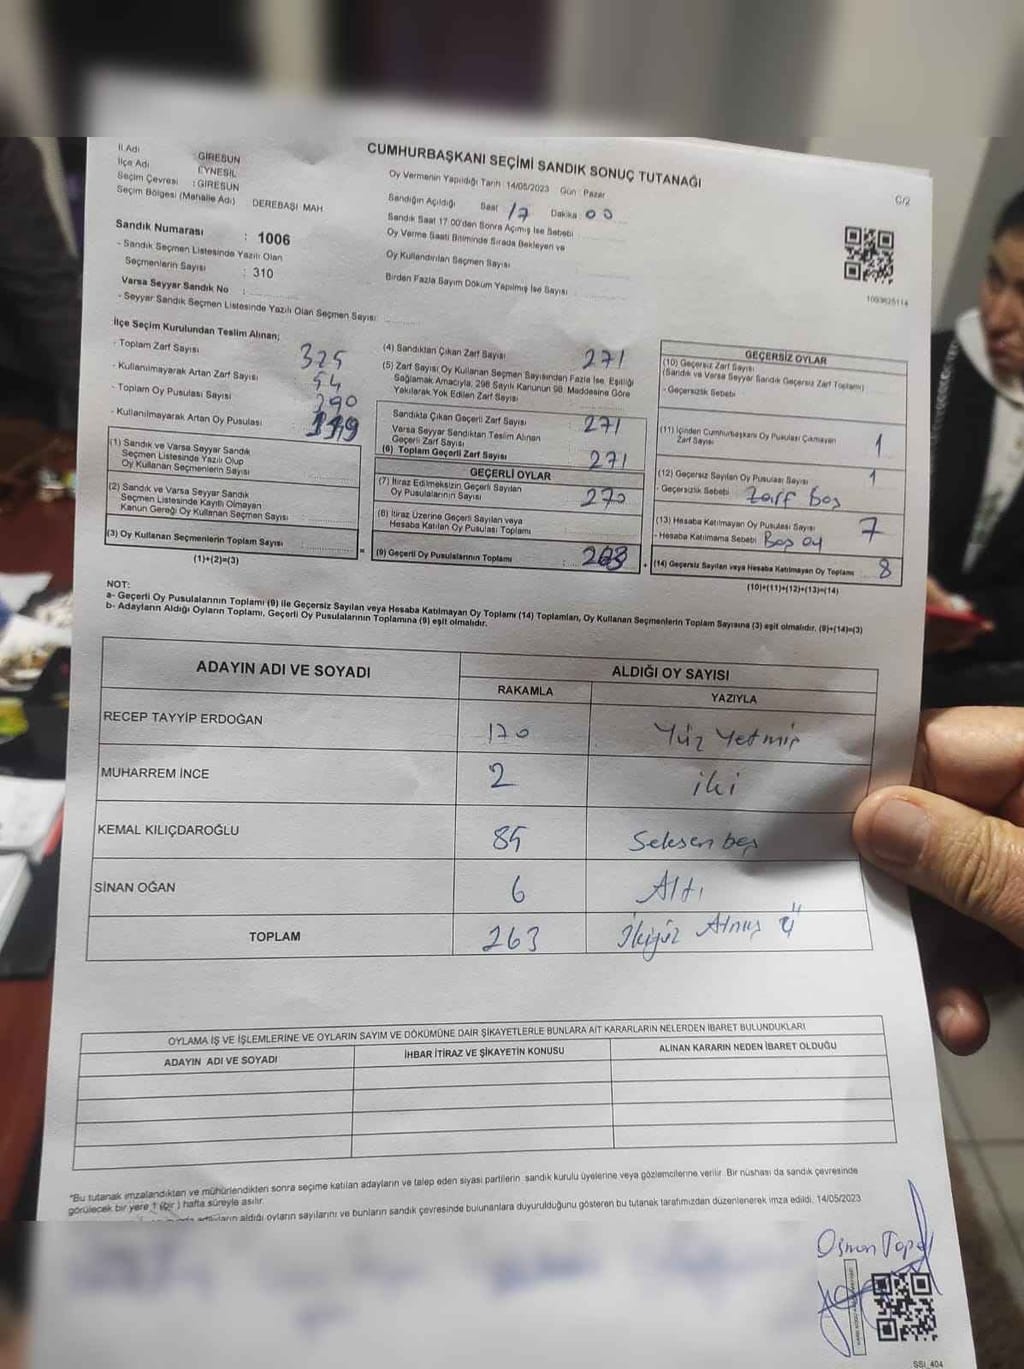 CUMHURBAŞKANI SEÇİMİ SANDIK SONUÇ TUTANAĞI
C/2
İl Adı : GİRESUN
İlçe Adı EYNESİL
Seçim Çevresi : GİRESUN
Seçim Bölgesi (Mahalle Adı) DEREBAŞI MAH
Sandık Numarası : 1006
- Sandık Seçmen Listesinde Yazılı Olan
Seçmenlerin Sayısı : 310
Varsa Seyyar Sandık No :
- Seyyar Sandık Seçmen Listesinde Yazılı Olan Seçmen Sayısı:
Oy Vermenin Yapıldığı Tarih :14/05/2023 Gün : Pazar
Sandığın Açıldığı Saat 17 Dakika 00
Sandık Saat 17:00'den Sonra Açmış İse Sebebi
Oy Verme Saati Bitiminde Sırada Bekleyen ve
Oy Kullandırılan Seçmen Sayısı
Birden Fazla Sayım Döküm Yapılmış İse Sayısı
1093625114
İlçe Seçim Kurulundan Teslim Alınan;
- Toplam Zarf Sayısı 325
- Kullanılmayarak Artan Zarf Sayısı 54
- Toplam Oy Pusulası Sayısı 390
- Kullanılmayarak Artan Oy Pusulası 119
(1) Sandık ve Varsa Seyyar Sandık
Seçmen Listesinde Yazılı Olup
Oy Kullanan Seçmenlerin Sayısı
(2) Sandık ve Varsa Seyyar Sandık
Seçmen Listesinde Kayıtlı Olmayan
Kanun Gereği Oy Kullanan Seçmen Sayısı
(3) Oy Kullanan Seçmenlerin Toplam Sayısı =
(1)+(2)=(3)
(4) Sandıktan Çıkan Zarf Sayısı 271
(5) Zarf Sayısı Oy Kullanan Seçmen Sayısından Fazla İse, Eşitliği
Sağlamak Amacıyla, 298 Sayılı Kanunun 98. Maddesine Göre
Yakılarak Yok Edilen Zarf Sayısı
Sandıkta Çıkan Geçerli Zarf Sayısı 271
Varsa Seyyar Sandıktan Teslim Alınan
Geçerli Zarf Sayısı
(6) Toplam Geçerli Zarf Sayısı 271
GEÇERLİ OYLAR
(7) İtiraz Edilmeksizin Geçerli Sayılan
Oy Pusulalarının Sayısı 270
(8) İtiraz Üzerine Geçerli Sayılan veya
Hesaba Katılan Oy Pusulası Toplamı
(9) Geçerli Oy Pusulalarının Toplamı : 263 +
GEÇERSİZ OYLAR
(10) Geçersiz Zarf Sayısı
(Sandık ve Varsa Seyyar Sandık Geçersiz Zarf Toplamı)
- Geçersizlik Sebebi
(11) İçinden Cumhurbaşkanı Oy Pusulası Çıkmayan
Zarf Sayısı 1
(12) Geçersiz Sayılan Oy Pusulası Sayısı 1
- Geçersizlik Sebebi Zarf Boş
(13) Hesaba Katılmayan Oy Pusulası Sayısı 7
- Hesaba Katılmama Sebebi Boş oy
(14) Geçersiz Sayılan veya Hesaba Katılmayan Oy Toplamı 8
(10)+(11)+(12)+(13)=(14)
NOT:
a- Geçerli Oy Pusulalarının Toplamı (9) ile Geçersiz Sayılan veya Hesaba Katılmayan Oy Toplamı (14) Toplamları, Oy Kullanan Seçmenlerin Toplam Sayısına (3) eşit olmalıdır. (9)+(14)=(3)
b- Adayların Aldığı Oyların Toplamı, Geçerli Oy Pusulalarının Toplamına (9) eşit olmalıdır.
ADAYIN ADI VE SOYADI ALDIĞI OY SAYISI
RAKAMLA YAZIYLA
RECEP TAYYİP ERDOĞAN 170 Yüz Yetmiş
MUHARREM İNCE 2 iki
KEMAL KILIÇDAROĞLU 85 Seksen beş
SİNAN OĞAN 6 Altı
TOPLAM 263 İkiyüz Atmış Ü
OYLAMA İŞ VE İŞLEMLERİNE VE OYLARIN SAYIM VE DÖKÜMÜNE DAİR ŞİKAYETLERLE BUNLARA AİT KARARLARIN NELERDEN İBARET BULUNDUKLARI
ADAYIN ADI VE SOYADI İHBAR İTİRAZ VE ŞİKAYETİN KONUSU ALINAN KARARIN NEDEN İBARET OLDUĞU
*Bu tutanak imzalandıktan ve mühürlendikten sonra seçime katılan adayların ve talep eden siyasi partilerin sandık kurulu üyelerine veya gözlemcilerine verilir. Bir nüshası da sandık çevresinde
görülecek bir yere 1 (bir) hafta süreyle asılır.
adayların aldığı oyların sayılarını ve bunların sandık çevresinde bulunanlara duyurulduğunu gösteren bu tutanak tarafımızdan düzenlenerek imza edildi. 14/05/2023
Osman Topal
SSI_404